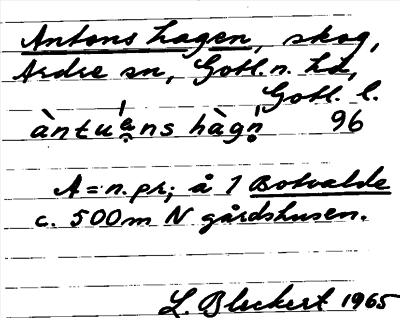 Antons hagen, skog,
Ardre sn, Gotl. n. hd,
Gotl. l.
àntu ns hàgn 96
A = n. pr; å 1 Botvalde
c. 500 m N gårdshusen.
L. Bleckert 1965